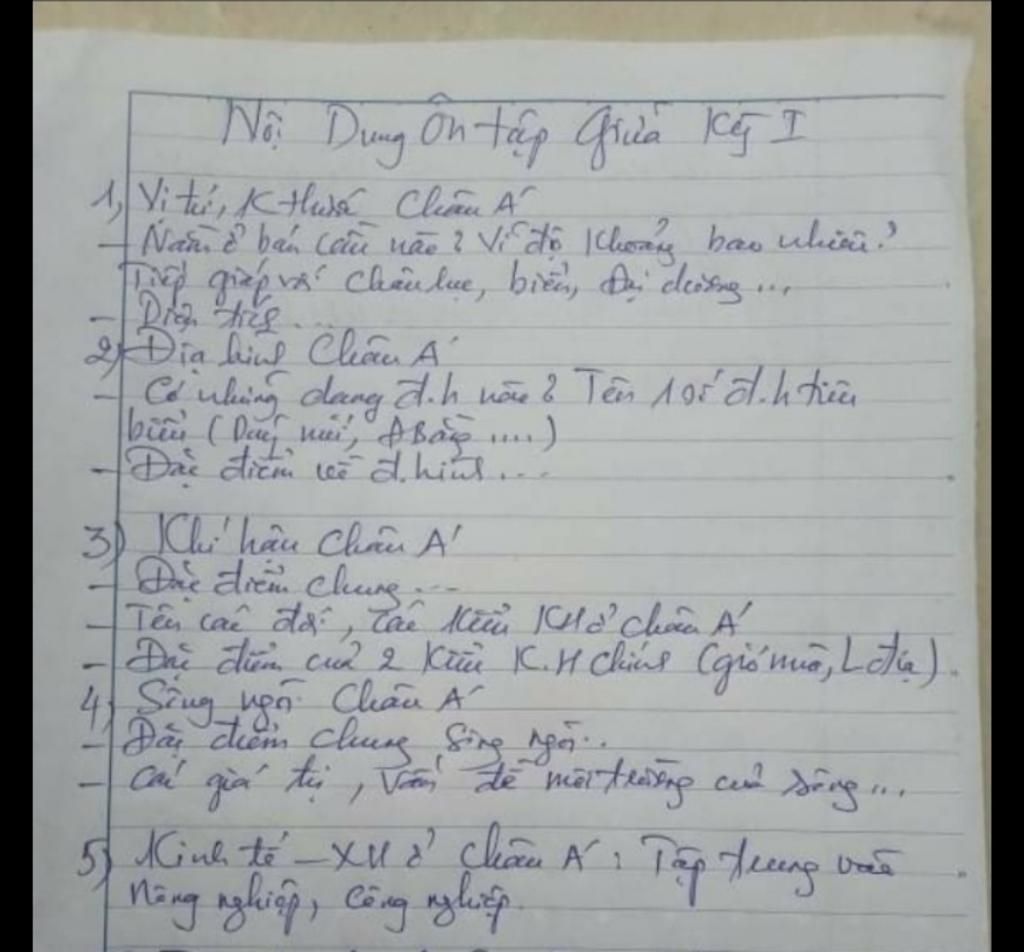 Nội Dung Ôn tập Giữa Kỳ I
1, Vị trí, K thước Châu Á
- Nằm ở bán cầu nào? Vĩ độ khoảng bao nhiêu?
Tiếp giáp với châu lục, biển, đại dương...
- Diện tích...
2) Địa hình Châu Á
- Có những dạng đ.h nào? Tên 1 số đ.h tiêu
biểu (Dãy núi, ĐBằng ....)
- Đặc điểm về đ.hình...
3) Khí hậu Châu Á
- Đặc điểm chung...
- Tên các đới, các kiểu KH ở châu Á
- Đặc điểm của 2 kiểu K.H chính (gió mùa, L địa).
4) Sông ngòi Châu Á
- Đặc điểm chung sông ngòi..
- Các giá trị, vấn đề môi trường của sông...
5) Kinh tế - XH ở Châu Á: Tập trung vào
Nông nghiệp, Công nghiệp.